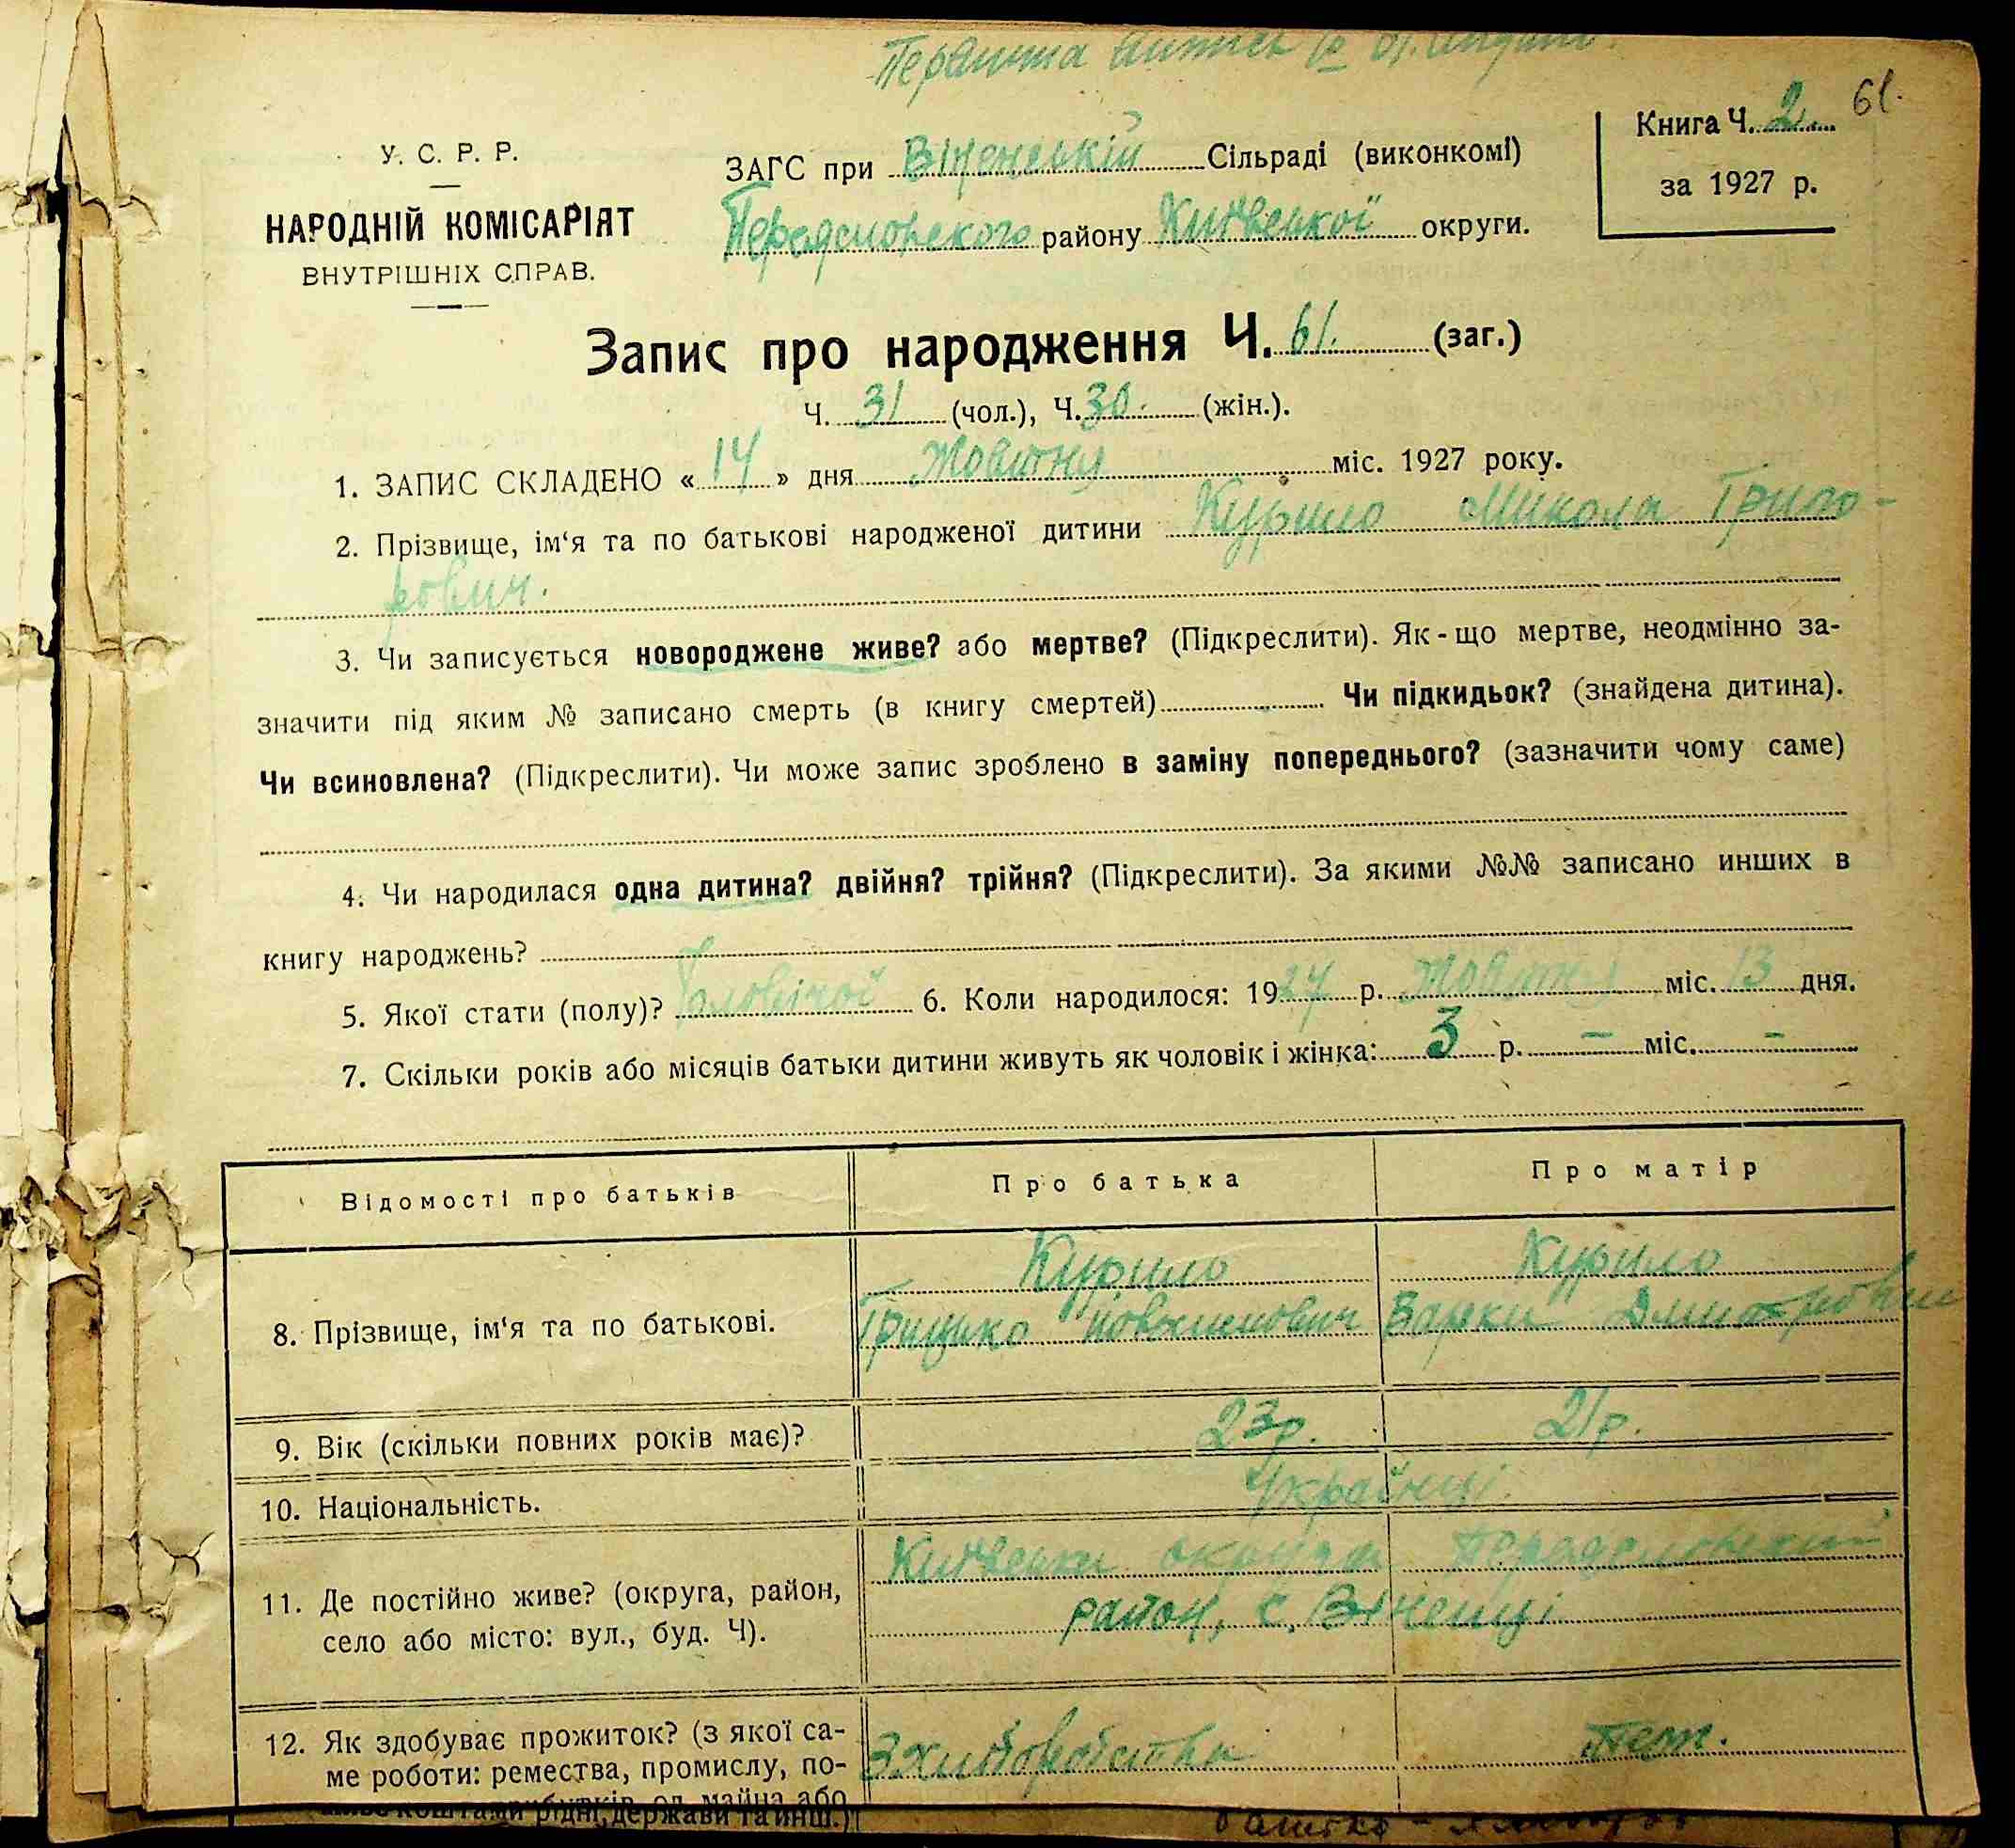 61.
Книга Ч. 2.
за 1927 р.
У. С. Р. Р.
НАРОДНІЙ КОМІСАРІЯТ
ВНУТРІШНІХ СПРАВ.
ЗАГС при Віненській Сільраді (виконкомі)
району Київської округи.
Запис про народження Ч. 61. (заг.)
Ч. 31 (чол.), Ч. 30. (жін.).
1. ЗАПИС СКЛАДЕНО « 14 » дня Жовтня міс. 1927 року.
2. Прізвище, ім‘я та по батькові народженої дитини Курило Микола Григо-
рович.
3. Чи записується новороджене живе? або мертве? (Підкреслити). Як-що мертве, неодмінно за-
значити під яким № записано смерть (в книгу смертей) Чи підкидьок? (знайдена дитина).
Чи всиновлена? (Підкреслити). Чи може запис зроблено в заміну попереднього? (зазначити чому саме)
4. Чи народилася одна дитина? двійня? трійня? (Підкреслити). За якими №№ записано инших в
книгу народжень?
5. Якої стати (полу)? 6. Коли народилося: 1927 р. Жовтня міс. 13 дня.
7. Скільки років або місяців батьки дитини живуть як чоловік і жінка: 3 р. – міс. –
Відомості про батьків
Про батька
Про матір
8. Прізвище, ім‘я та по батькові.
Курило
Грицько
Курило
Варки
9. Вік (скільки повних років має)?
23р.
21р.
10. Національність.
Українці
11. Де постійно живе? (округа, район,
село або місто: вул., буд. Ч).
округа
район, с. Віненці
12. Як здобуває прожиток? (з якої са-
ме роботи: ремества, промислу, по-
З хліборобства
теж.